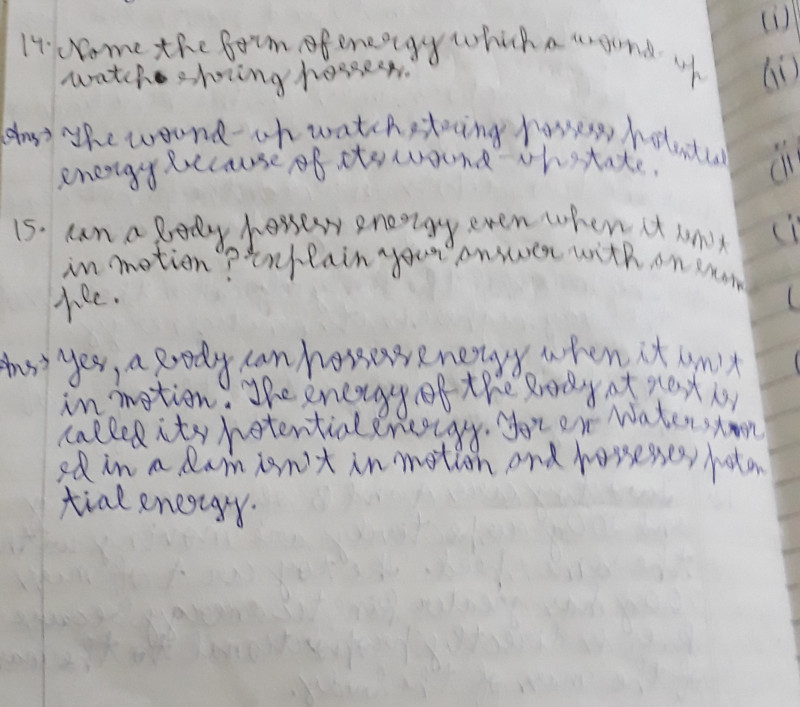 14. Name the form of energy which a wound-up
watch spring possess.
Ans→ The wound-up watch string possess potential
energy because of its wound-up state.
15. Can a body possess energy even when it isn't
in motion? Explain your answer with an exam
ple.
Ans→ Yes, a body can possess energy when it isn't
in motion. The energy of the body at rest is
called its potential energy. For ex Water stor
ed in a dam isn't in motion and possesses poten
tial energy.
(i)
(ii)